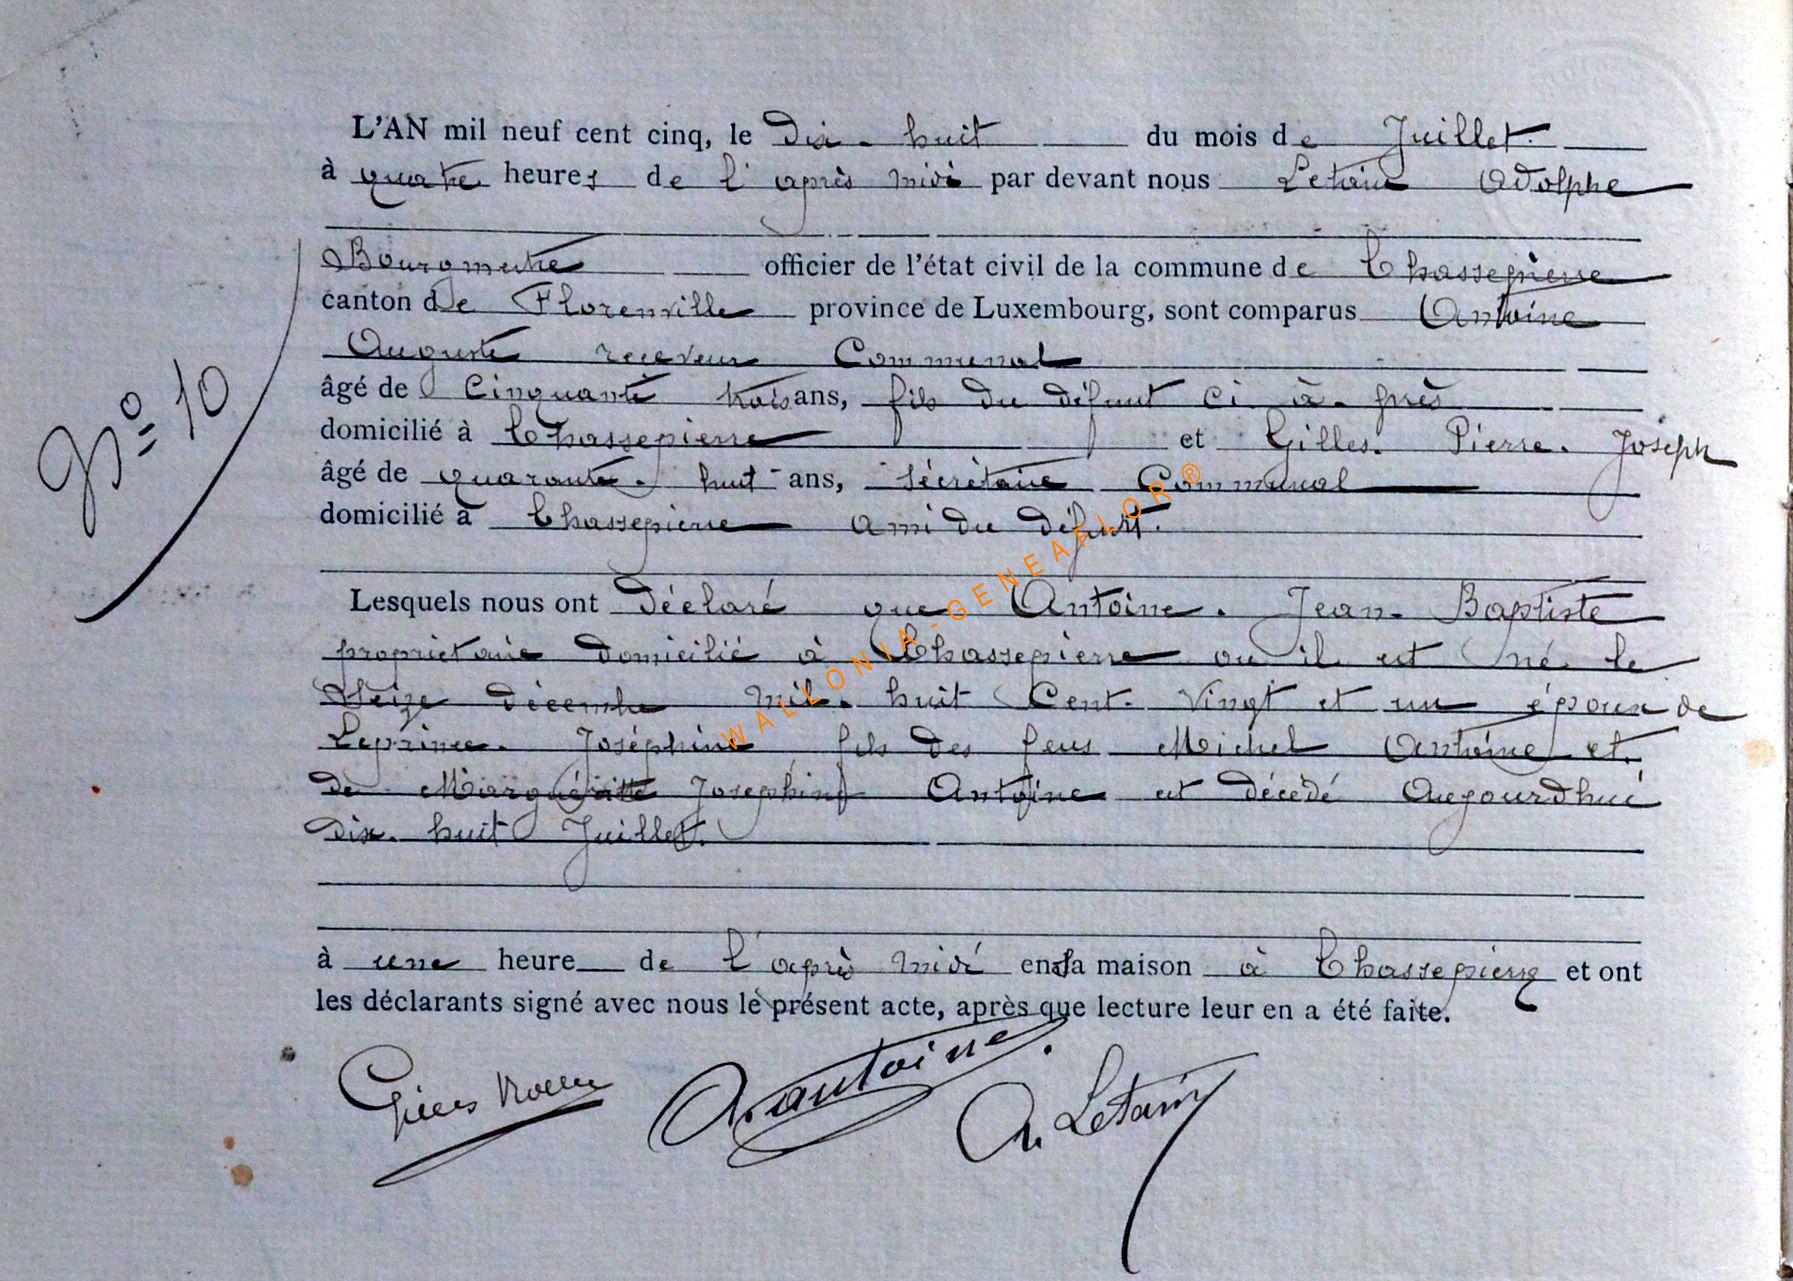 L'AN mil neuf cent cinq, le Dix-huit du mois de Juillet.
à quatre heures de l'après midi par devant nous Letain Adolphe
Bourgmestre officier de l'état civil de la commune de Chassepierre
canton de Florenville province de Luxembourg, sont comparus Antoine
Auguste receveur Communal
âgé de Cinquante trois ans, fils du défunt ci-à-près
N° 10
domicilié à Chassepierre et Gilles. Pierre. Joseph
âgé de quarante-huit ans, sécrètaire Communal
domicilié à Chassepierre ami du défunt.
Lesquels nous ont Déclaré que Antoine. Jean-Baptiste
propriétaire domicilié à Chassepierre ou il est né le
Seize décembre mil-huit Cent-vingt et un époux de
Leprince. Joséphine fils des feus Michel Antoine et
de Marguéritte Josephine Antoine est décédé Aujourdhui
Dix-huit Juillet.
à une heure de l'après midi en sa maison à Chassepierre et ont
les déclarants signé avec nous le présent acte, après que lecture leur en a été faite.
Gilles A. antoine. A. Letain
WALLONIA-GENEAFLOR ®